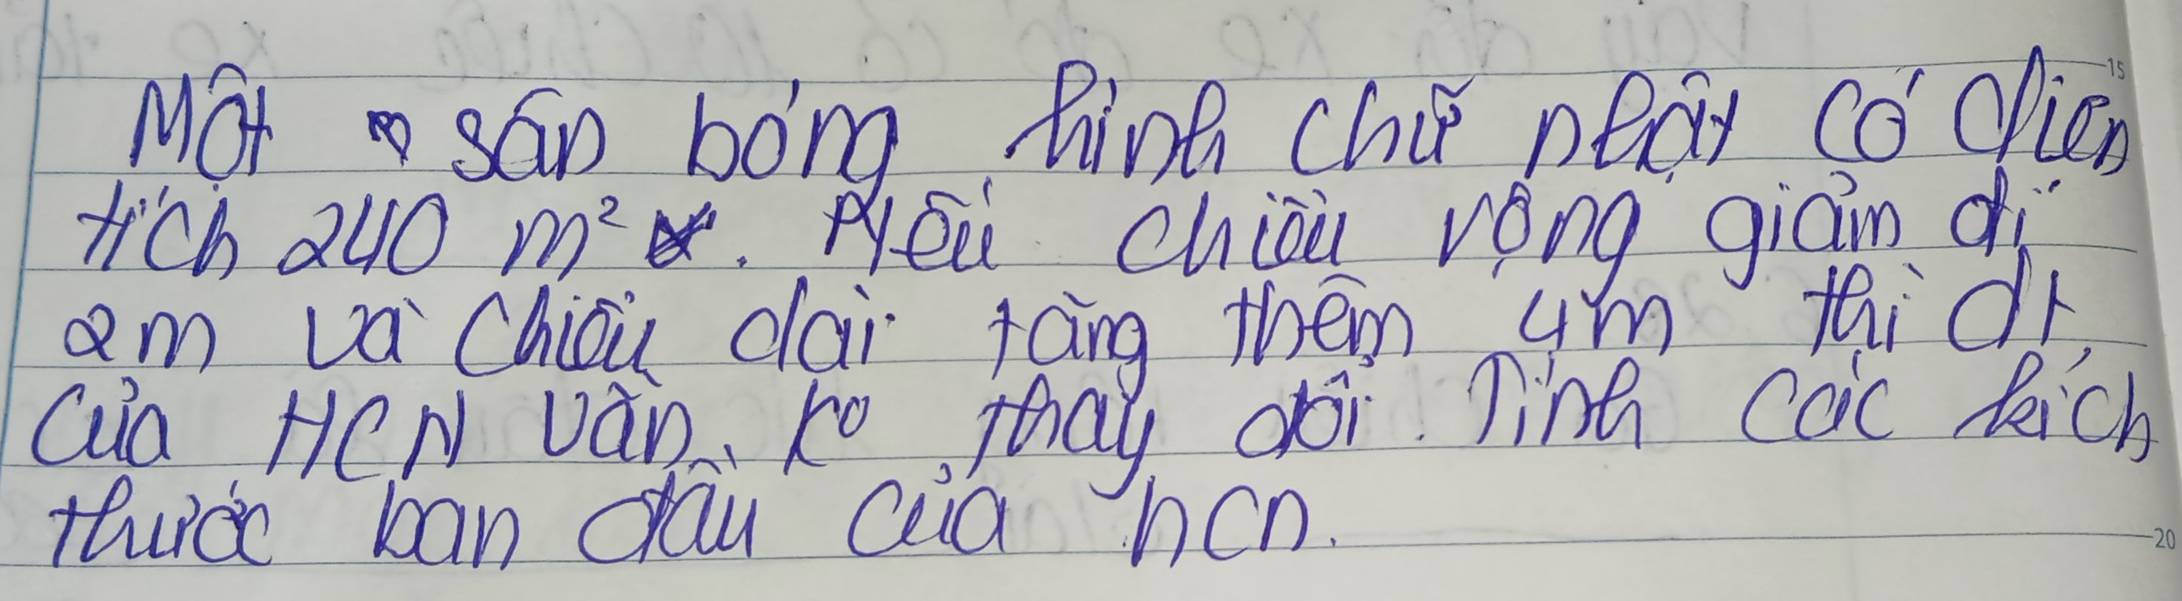 Một sân bóng hình chữ nhật có diện
tích 240 m². Nếu chiều rộng giảm đi
2m và chiều dài tăng thêm 4m thì dt
của HCN vẫn ko thay đổi. Tính các kích
thước ban đầu của hcn.
15
20